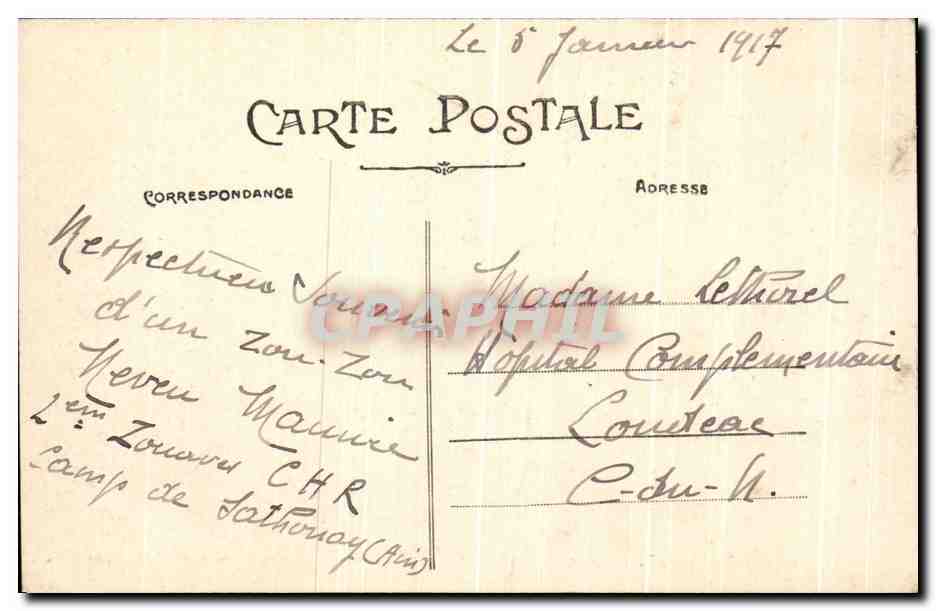 Le 5 Janvier 1917
CARTE POSTALE
CORRESPONDANCE
ADRESSE
Respectueux Souvenir
d'un Zou-Zou
Neveu Maurice
2em Zouaves CHR
Camp de Sathonay (Ain)
Madame Lethorel
Hôpital Complementaire
Loudeac
C-du-N.
CPAPHIL